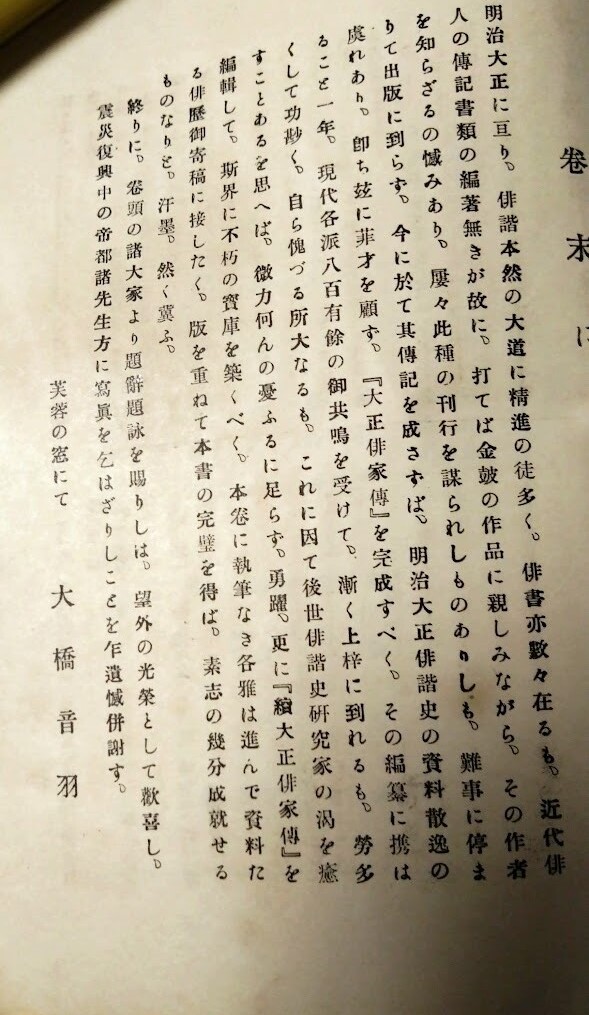 卷末に
明治大正に亘り。俳諧本然の大道に精進の徒多く。俳書亦數々在るも。近代俳
人の傳記書類の編著無きが故に。打てば金皷の作品に親しみながら。その作者
を知らざるの憾みあり。屢々此種の刊行を謀られしものありしも。難事に停ま
りて出版に到らず。今に於て其傳記を成さずば。明治大正俳諧史の資料散逸の
虞れあり。卽ち玆に菲才を顧ず。『大正俳家傳』を完成すべく。その編纂に携は
ること一年。現代各派八百有餘の御共鳴を受けて。漸く上梓に到れるも。勞多
くして功尠く。自ら愧づる所大なるも。これに因て後世俳諧史硏究家の渴を癒
すことあるを思へば。微力何んの憂ふるに足らず。勇躍。更に『續大正俳家傳』を
編輯して。斯界に不朽の寳庫を築くべく。本卷に執筆なき各雅は進んで資料た
る俳歷御寄稿に接したく。版を重ねて本書の完璧を得ば。素志の幾分成就せる
ものなりと。汗墨。然く冀ふ。
終りに。卷頭の諸大家より題辭題詠を賜りしは。望外の光榮として歡喜し。
震災復興中の帝都諸先生方に寫眞を乞はざりしことを乍遺憾併謝す。
芙蓉の窓にて　大橋音羽